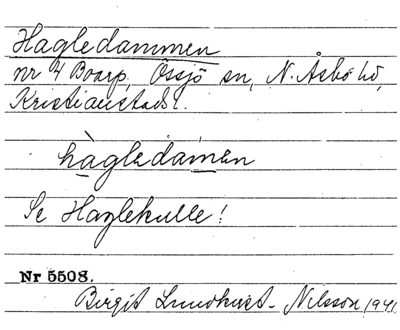 Hagledammen
nr 4 Boarp, Össjö sn, N. Åsbo hd,
Kristianstads l.
hàgledámen
Se Haglekulle!
Nr 5508.
Birgit Lundkvist-Nilsson 1941.